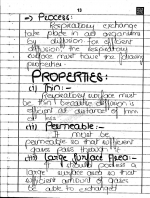 13
=> PROCESS:-
Respiratory exchange
take place in all organisms
by diffusion. For efficient
diffusion, the respiratory
surface must have the following
properties:-
PROPERTIES:-
(i) Thin:-
Respiratory surface must
be thin because diffusion is
efficient at distance of 1mm
or less
(ii) Permeable:-
It must be
permeable so that sufficient
gases pass through it.
(iii) Large Surface Area:-
It should possess a
large surface area so that
sufficient amount of gases
be able to exchanged